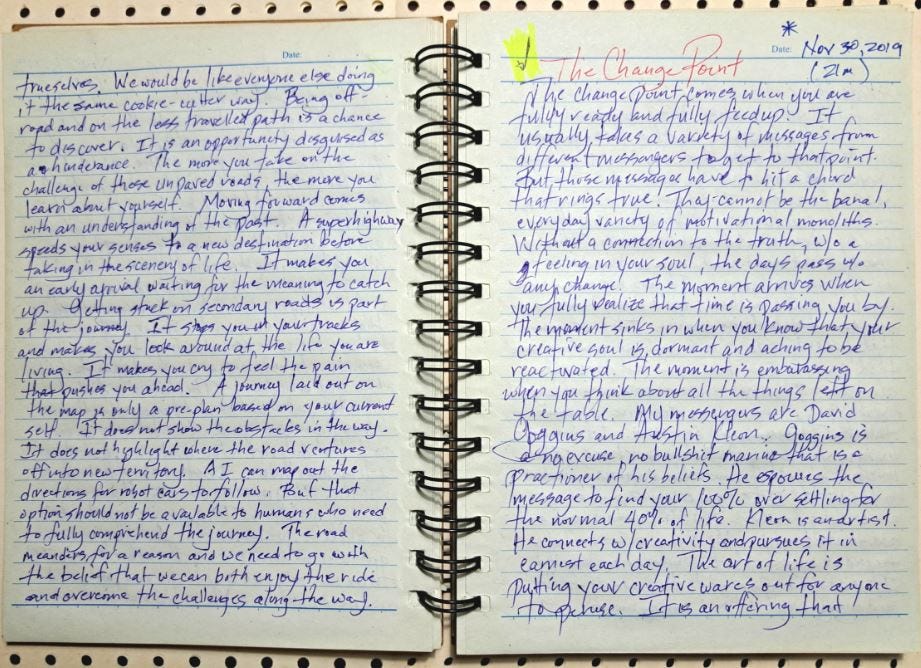 Date:
trueselves. We would be like everyone else doing
it the same cookie-cutter way. Being off-
road and on the less travelled path is a chance
to discover. It is an opportunity disguised as
a hinderance. The more you take on the
challenge of those unpaved roads, the more you
learn about yourself. Moving forward comes
with an understanding of the past. A superhighway
speeds your senses to a new destination before
taking in the scenery of life. It makes you
an early arrival waiting for the meaning to catch
up. Getting stuck on secondary roads is part
of the journey. It stops you in your tracks
and makes you look around at the life you are
living. It makes you cry to feel the pain
that pushes you ahead. A journey laid out on
the map is only a pre-plan based on your current
self. It does not show the obstacles in the way.
It does not highlight where the road ventures
off into new territory. A I can map out the
directions for robot cars to follow. But that
option should not be available to humans who need
to fully comprehend the journey. The road
meanders for a reason and we need to go with
the belief that we can both enjoy the ride
and overcome the challenges along the way.
*
Date: Nov 30, 2019
The Change Point
(21m)
The change point comes when you are
fully ready and fully feedup. It
usually takes a variety of messages from
different messangers to get to that point.
But those messages have to hit a chord
that rings true. They cannot be the banal,
everyday variety of motivational monoliths.
Without a connection to the truth, w/o a
feeling in your soul, the days pass w/o
any change. The moment arrives when
you fully realize that time is passing you by.
The moment sinks in when you know that your
creative soul is dormant and aching to be
reactivated. The moment is embarassing
when you think about all the things left on
the table. My messengers are David
Goggins and Austin Kleon. Goggins is
a no excuse, no bullshit marine that is a
practioner of his beliefs. He espouses the
message to find your 100% over settling for
the normal 40% of life. Kleon is an artist.
He connects w/creativity and pursues it in
earnest each day. The art of life is
putting your creative wares out for anyone
to peruse. It is an offering that